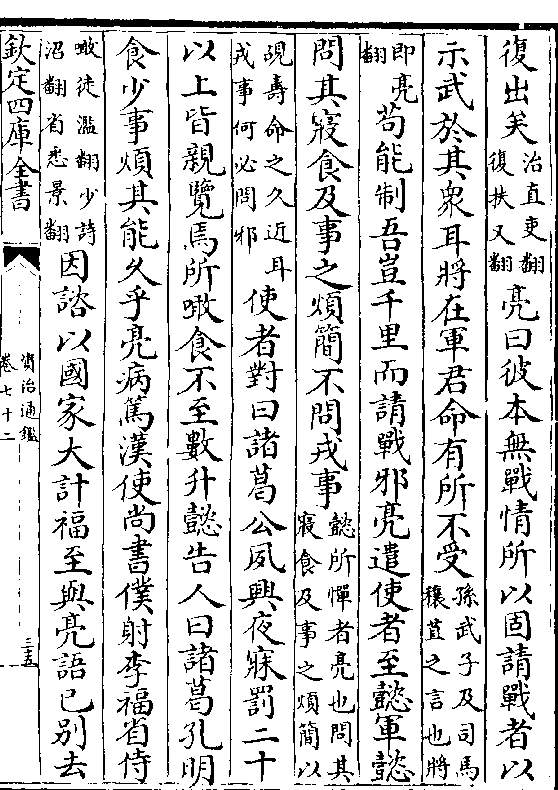 復出矣治直吏翻復扶又翻亮曰彼本無戰情所以固請戰者以
示武於其衆耳將在軍君命有所不受孫武子及司馬穰苴之言也將
即亮翻苟能制吾豈千里而請戰邪亮遣使者至懿軍懿
問其寢食及事之煩簡不問戎事懿所憚者亮也問其寢食及事之煩簡以
覘壽命之久近耳戎事何必問邪使者對曰諸葛公夙興夜寐罰二十
以上皆親覽焉所噉食不至數升懿告人曰諸葛孔明
食少事煩其能久乎亮病篤漢使尚書僕射李福省侍
噉徒濫翻少詩沼翻省悉景翻因諮以國家大計福至與亮語已别去
欽定四庫全書
資治通鑑
卷七十二
三五